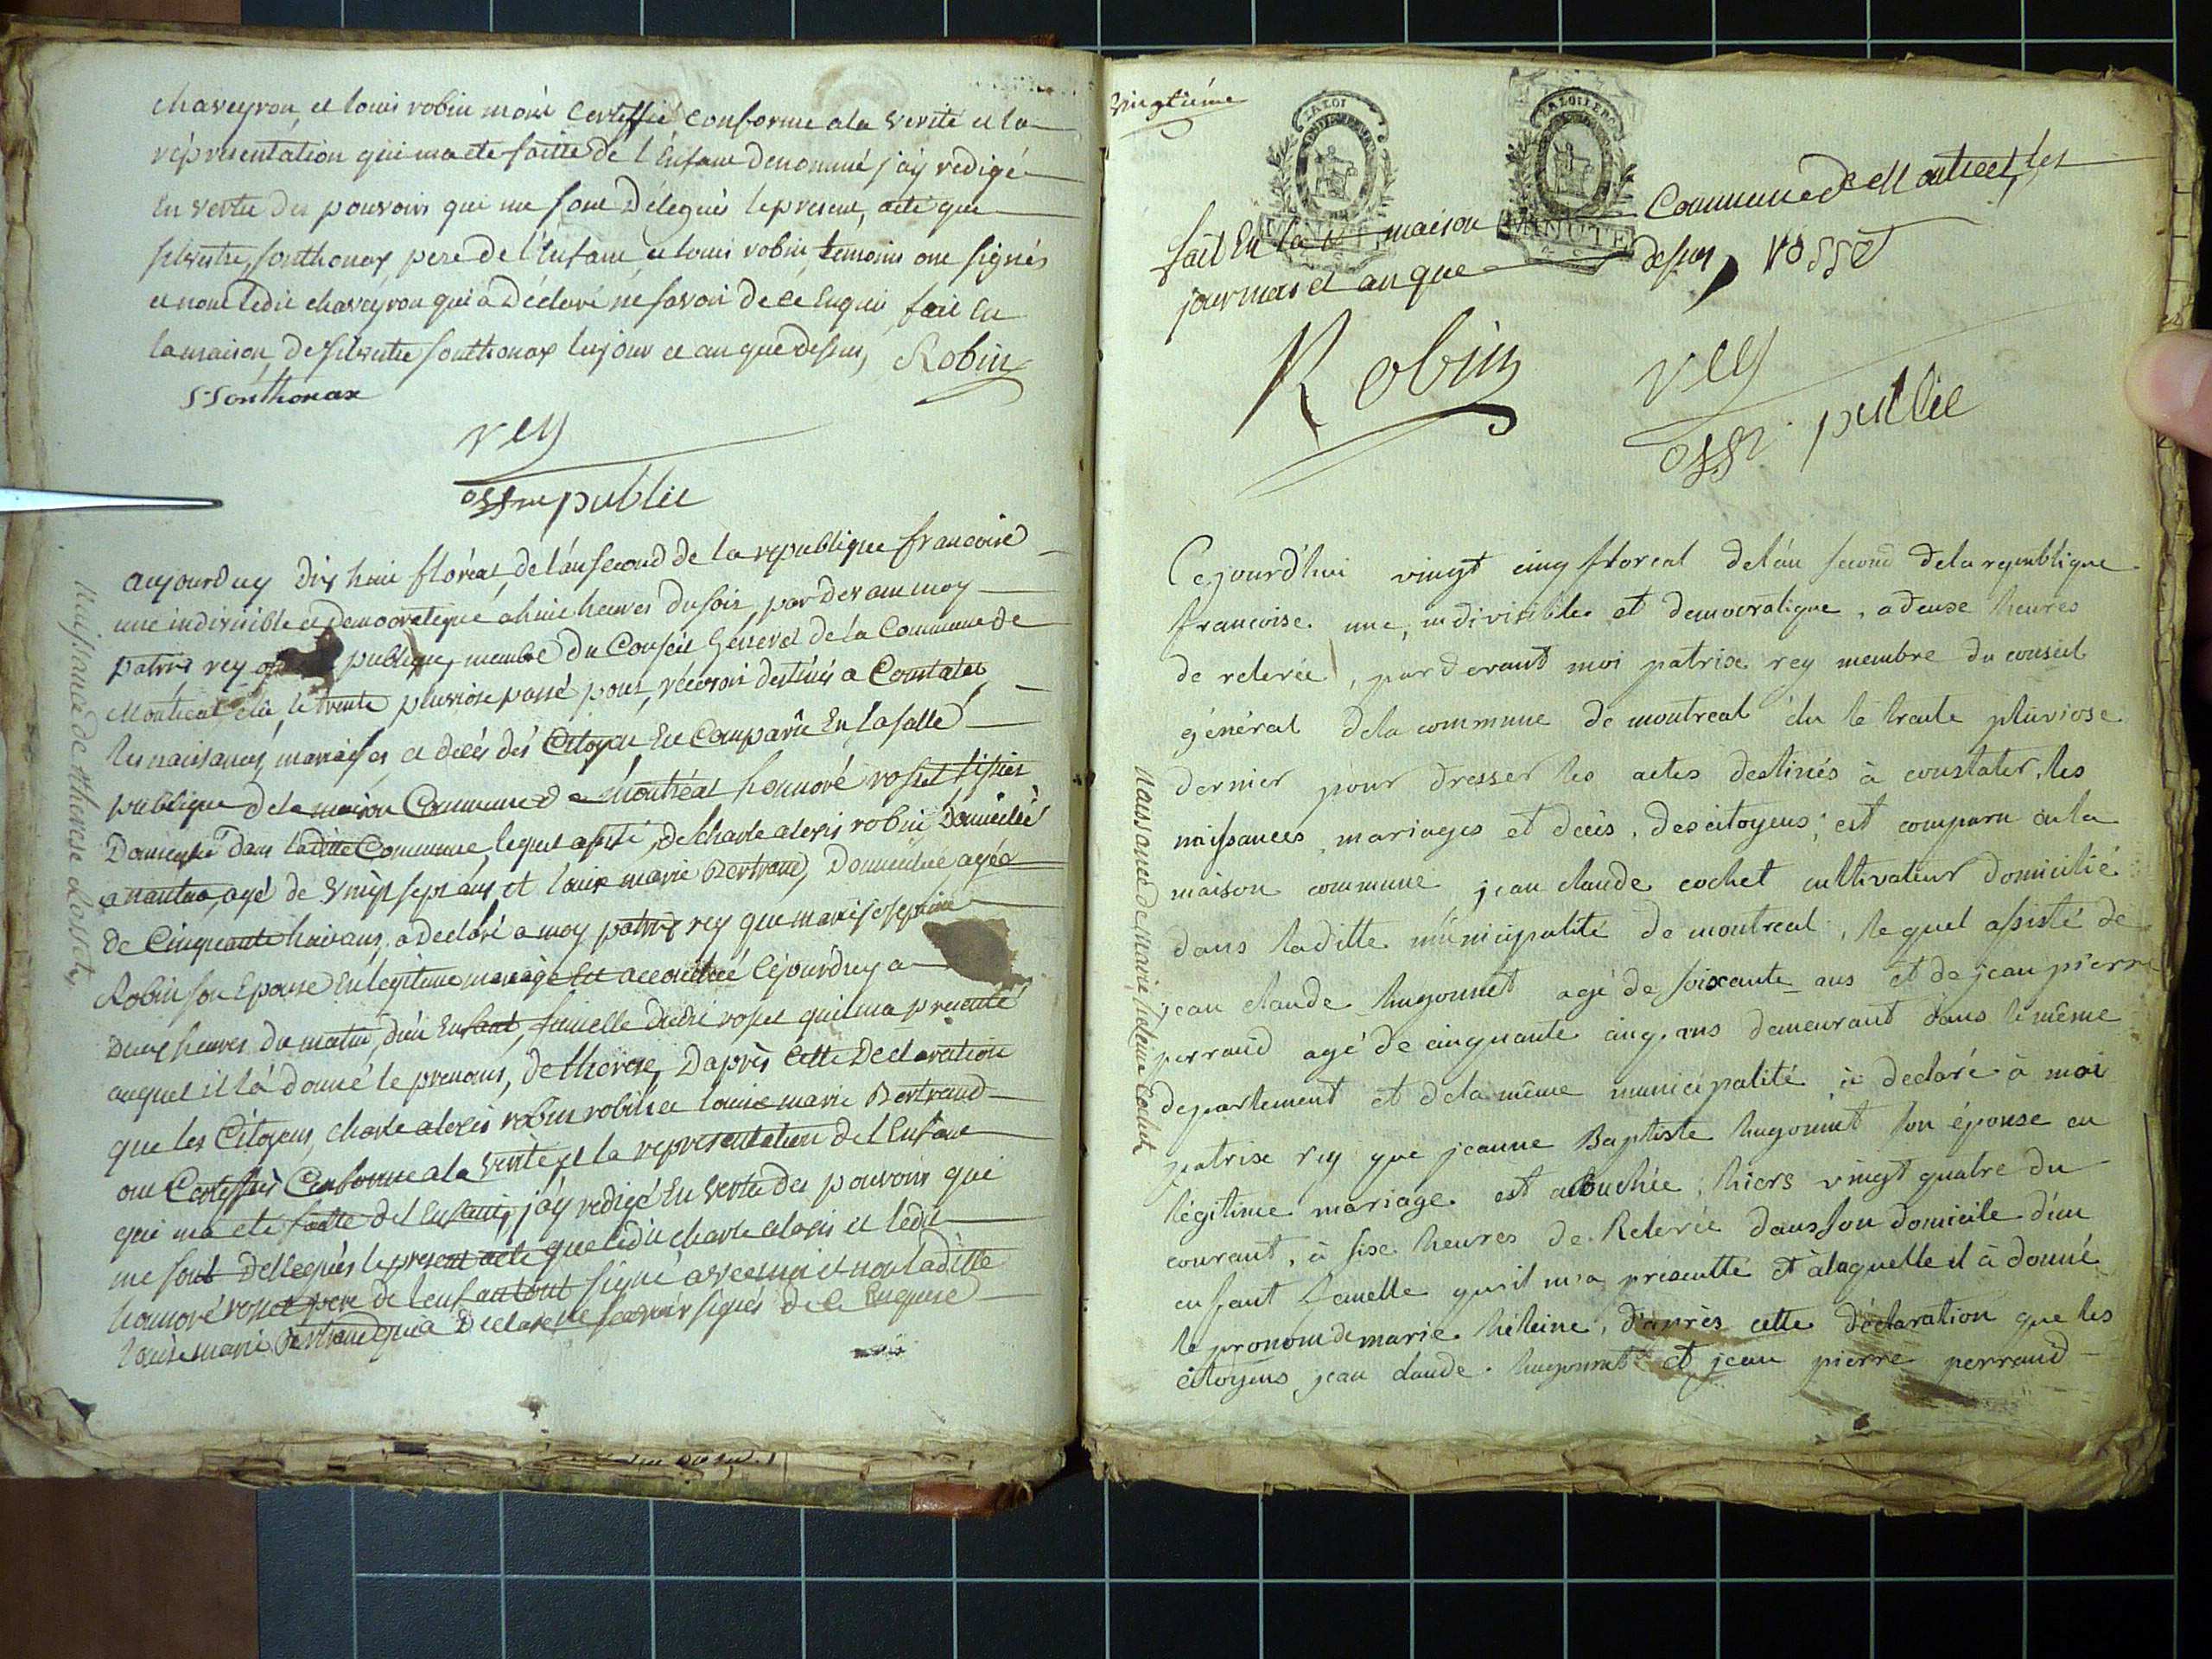 chaveyron, et louis robin mont certiffié conforme a la verité et la
répresentation qui ma eté faitte de l'Enfant denommé j'ay redigé
En vertu des pouvoirs qui me sont Délegués le present acte que
silvestre sonthonax pere de l'Enfant et louis robin témoins ont signés
et non ledit chaveyron qui a déclaré ne savoir de ce Enquis fait En
la maison de silvestre sonthonax les jour et an que dessus, Robin
S Sonthonax
rey
off public
aujourduy dix huit floréal de l'an second de la republique francoise
une indivisible et democratique a huit heures du soir, par devant moy
patrix rey public, membre du Conseil General de la Commune de
Montreal élu le trente pluviose passé pour récevoir destinés a Constater
les naissances, mariages et decés des Citoyens Est Comparû En la salle
publique de la maison Commune de montréal honnoré rosset
Domicilié dans ladite Commune, lequel assisté de charle alexis robin Domicilié
a nantua, agé de vingt sept ans et louise marie Bertrand, Domiciliée agée
de Cinquante huit ans, a declaré a moy patrix rey que marie josephine
Robin son Epouse En legitime mariage Est accouchée Cejourduy a
deux heures du matin, d'un Enfant, fumelle dudit rosset quil ma presenté
auquel il lá donné le prenoms, de therese, Daprès Cette Declaration
que les Citoyens, charle alexis robin robin et louise marie Bertrand
ont Certiffiés Conforme a la verité et la representation de l'Enfant
qui ma eté faitte del Enfant, j'ay redigé En vertu des pouvoirs qui
me sont dellegués le present acte que ledit charle alexis et ledit
honnoré rosset pere de l'enfant ont signé avec moi et non laditte
louise marie Bertrand qui a Declaré ne sçavoir signés de ce Enquise
Naissance de therese Rosset
vingtiéme
LA LOI
LA LOI LE RO
MINUTE
MINUTE
fait En la maison Commune de Montreal, les
jour mois et an que dessus, rosset
Robin
rey
off. public
Cejourd'hui vingt cinq floreal del'an second dela republique
francoise une, indivisible et democratique, a deuse heures
de relevée, pardevant moi patrix rey membre du conseil
général dela commune de montreal élu le trente pluviose
dernier pour dresser les actes destinés à constater, les
naissances, mariages et décès, des citoyens; est comparu en la
maison commune jean claude cochet cultivateur domicilié
dans laditte municipalité de montreal, lequel assisté de
jean claude hugonnet agé de soixante ans et de jean pierre
perraud agé de cinquante cinq ans demeurant dans le même
departement et dela même municipalité à declaré à moi
patrix rey que jeanne Baptiste hugonnet son épouse en
légitime mariage est acouchée, hiers vingt quatre du
courant, à sixe heures de Relevée dans son domicile d'un
enfant femelle qu'il m'a présentté et àlaquelle il à donné
le pronom de marie héleine, d'après cette déclaration que les
citoyens jean claude hugonnet et jean pierre perraud
Naissance de Marie héleine Cochet